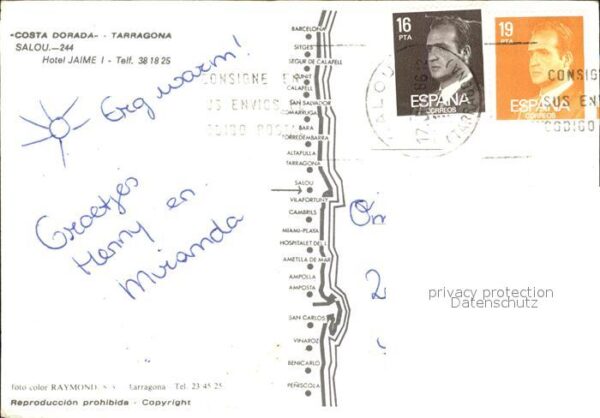 "COSTA DORADA" - TARRAGONA
SALOU.—244
Hotel JAIME I - Telf. 38 18 25
Erg warm!
Groetjes
Henny en
Miranda
foto color RAYMOND, S. Tarragona - Tel. 23 45 25
Reproducción prohibida - Copyright
BARCELONA
SITGES
SEGUR DE CALAFELL
CUNIT
CALAFELL
SAN SALVADOR
COMARRUGA
BARA
TORREDEMBARRA
ALTAFULLA
TARRAGONA
SALOU
VILAFORTUNY
CAMBRILS
MIAMI-PLAYA
HOSPITALET DEL I.
AMETLLA DE MAR
AMPOLLA
AMPOSTA
SAN CARLOS
VINAROZ
BENICARLO
PEÑISCOLA
16
PTA
ESPAÑA
CORREOS
19
PTA
ESPAÑA
CORREOS
CONSIGNE EN
SUS ENVIOS
CODIGO POSTAL
SALOU
17
CONSIG
SUS ENVIO
CODIGO
2
privacy protection
Datenschutz